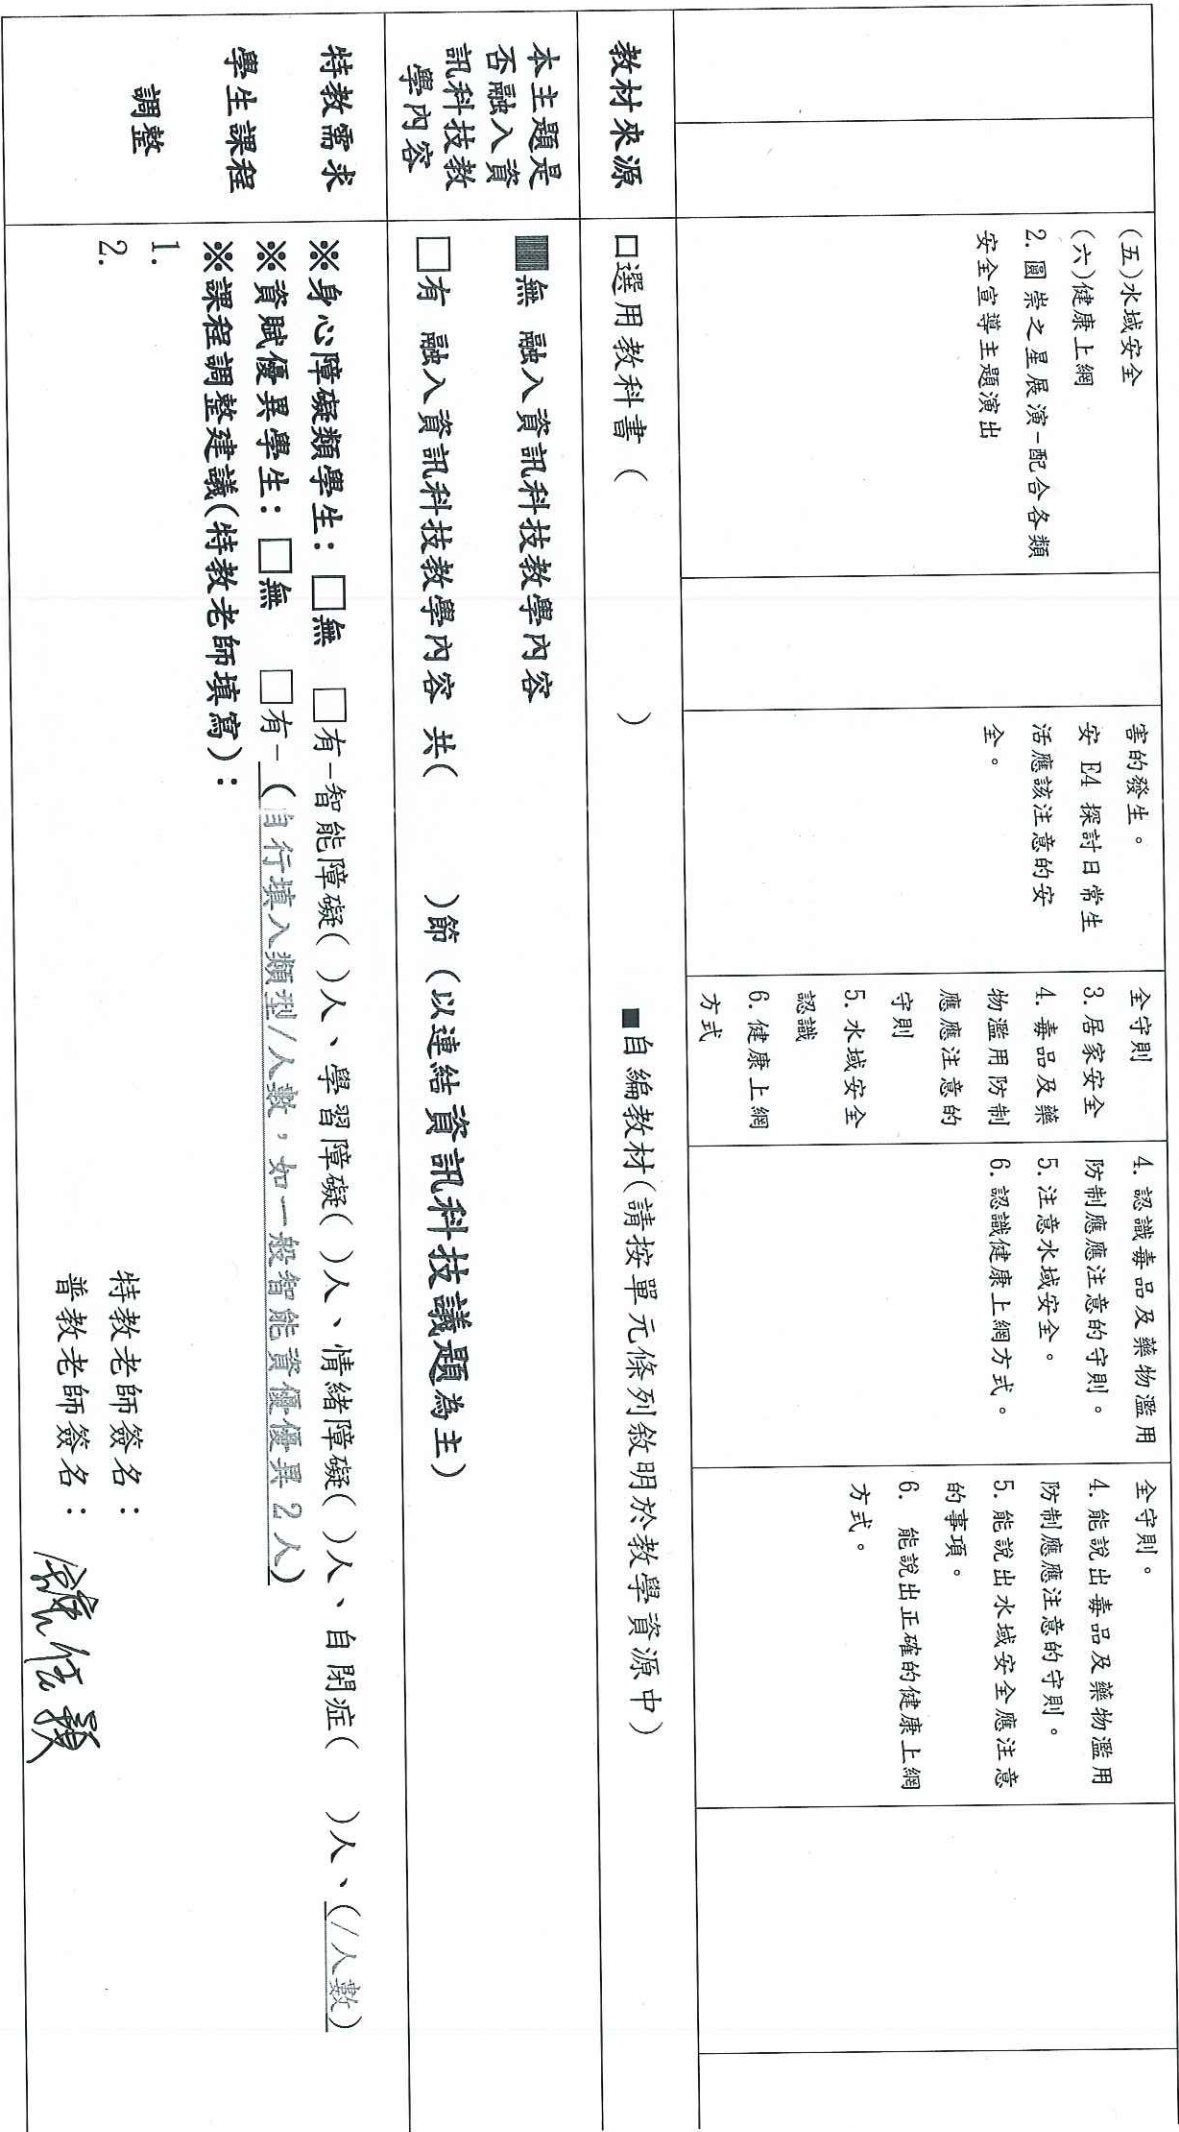 (五)水域安全
(六)健康上網
2.圓崇之星展演-配合各類
安全宣導主題演出
害的發生。
安 E4 探討日常生
活應該注意的安
全。
全守則
3.居家安全
4.毒品及藥
物濫用防制
應應注意的
守則
5.水域安全
認識
6.健康上網
方式
4. 認識毒品及藥物濫用
防制應應注意的守則。
5.注意水域安全。
6.認識健康上網方式。
全守則。
4.能說出毒品及藥物濫用
防制應應注意的守則。
5.能說出水域安全應注意
的事項。
6. 能說出正確的健康上網
方式。
教材來源
□選用教科書 ( )
■自編教材(請按單元條列敘明於教學資源中)
本主題是
否融入資
訊科技教
學內容
■無 融入資訊科技教學內容
□有 融入資訊科技教學內容 共( )節 (以連結資訊科技議題為主)
特教需求
學生課程
調整
※身心障礙類學生: □無 □有-智能障礙( )人、學習障礙( )人、情緒障礙( )人、自閉症( )人、(/人數)
※資賦優異學生: □無 □有- (自行填入類型/人數，如一般智能資優優異 2 人)
※課程調整建議(特教老師填寫):
1.
2.
特教老師簽名:
普教老師簽名: